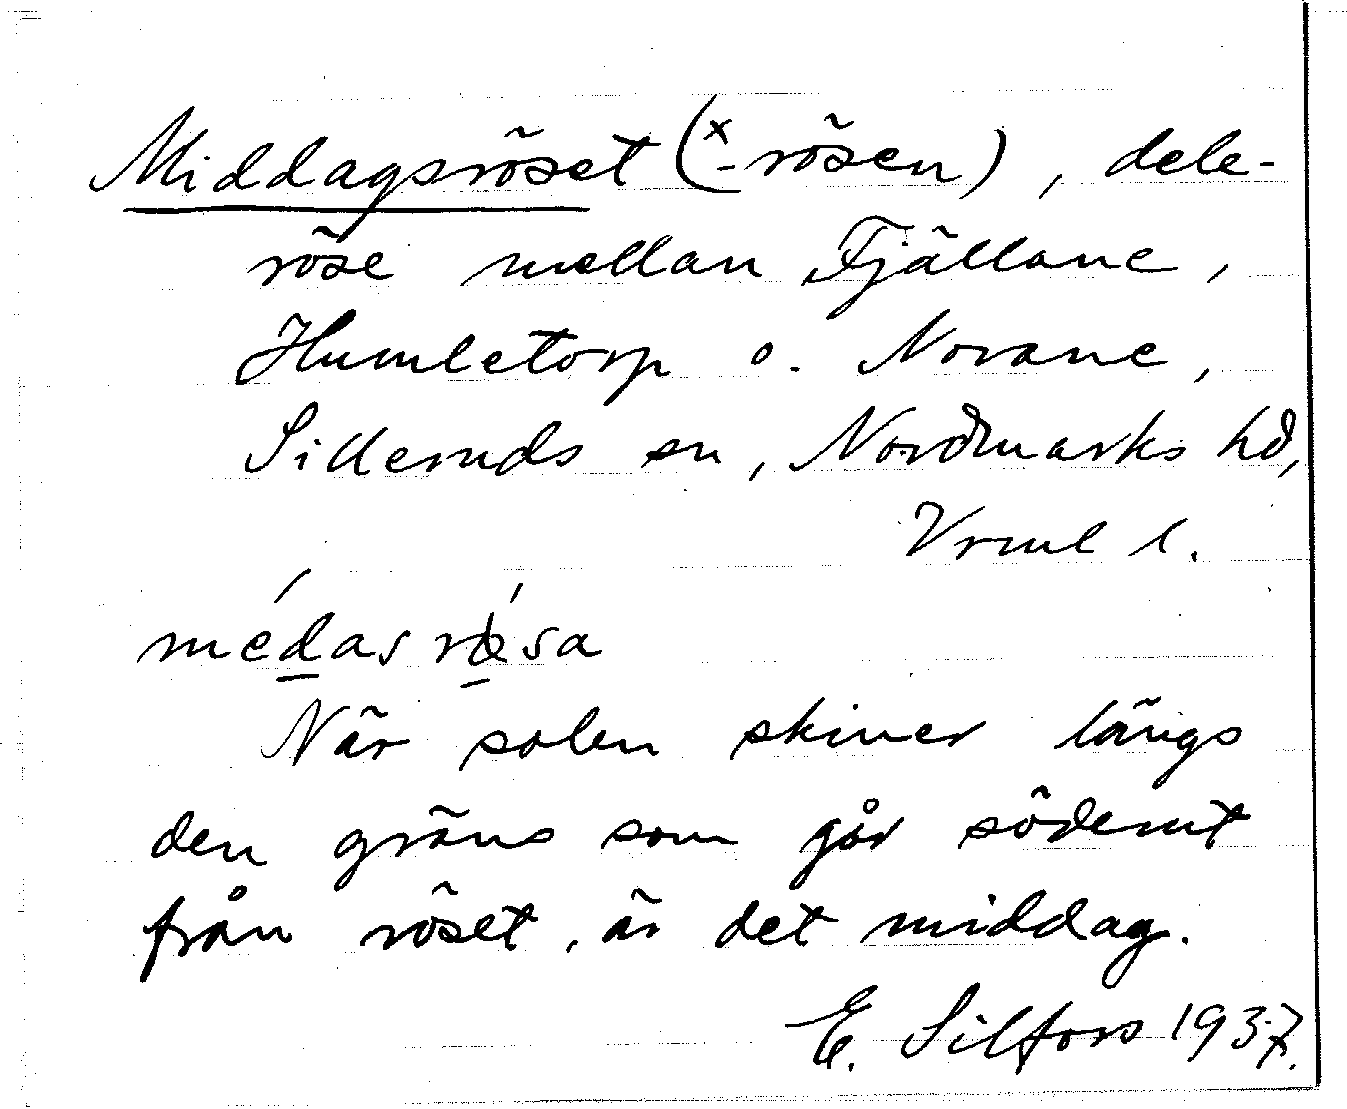 Middagsröset (x-rösen), dele-
röse mellan Fjällane,
Humletorp o. Norane,
Silleruds sn, Nordmarks hd,
Vrml l.
médas rǿsa
När solen skiner längs
den gräns som går söderut
från röset, är det middag.
E. Silfors 1937.